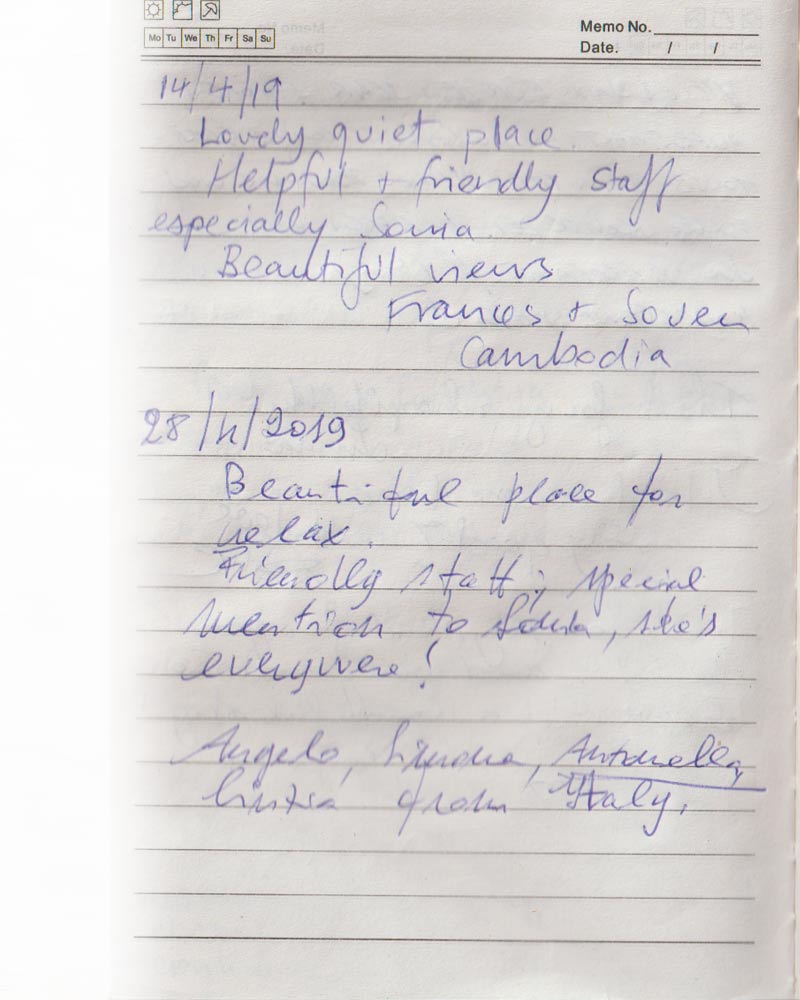 Mo Tu We Th Fr Sa Su
Memo No.
Date. / /
14/4/19
Lovely quiet place.
Helpful + friendly staff
especially Sonia.
Beautiful views
Frances + Soven
Cambodia
28/4/2019
Beautiful place for
relax.
Friendly staff, special
mention to Sonia, she's
everywere!
Angelo, Antonella
from Italy.